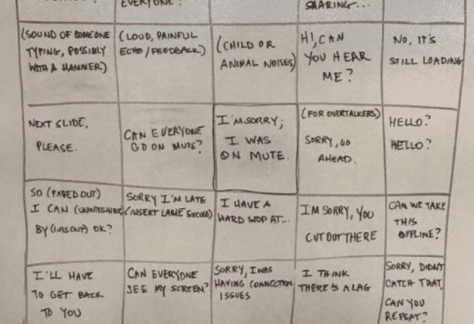 EVERYONE?
SHARING...
(SOUND OF SOMEONE
TYPING, POSSIBLY
WITH A HAMMER)
(LOUD, PAINFUL
ECHO/FEEDBACK)
(CHILD OR
ANIMAL NOISES)
HI, CAN
YOU HEAR
ME?
NO, IT'S
STILL LOADING
NEXT SLIDE,
PLEASE.
CAN EVERYONE
GO ON MUTE?
I'M SORRY;
I WAS
ON MUTE.
(FOR OVERTALKERS)
SORRY, GO
AHEAD.
HELLO?
HELLO?
SO (FADED OUT)
I CAN
BY (CUTS OUT) OK?
SORRY I'M LATE
(INSERT LAME EXCUSE)
I HAVE A
HARD STOP AT...
I'M SORRY, YOU
CUT OUT THERE
CAN WE TAKE
THIS
OFFLINE?
I'LL HAVE
TO GET BACK
TO YOU
CAN EVERYONE
SEE MY SCREEN?
SORRY, I WAS
HAVING CONNECTION
ISSUES
I THINK
THERE'S A LAG
SORRY, DIDN'T
CATCH THAT.
CAN YOU
REPEAT?